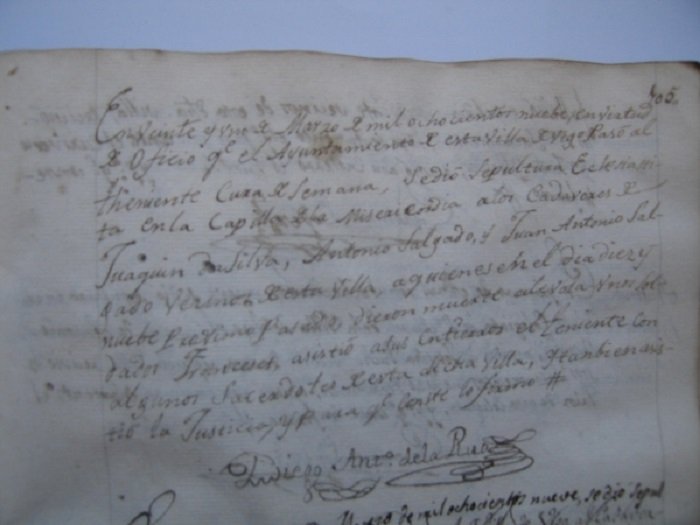 105.
En veinte y uno de Marzo de mil ochocientos nuebe, en virtud
de Oficio qe. el Ayuntamiento de esta Villa de Vigo Pasó al
theniente Cura de Semana, se dió Sepultura Eclesiasti-
ca en la Capilla de la Misericordia a los Cadaveres de
Juaquin da Silva, Antonio Salgado, y Juan Antonio Sal-
gado vezinos de esta Villa, a quienes en el dia diez y
nuebe proximo pasado, dieron muerte alevosa unos Sol-
dados Franceses, asistió a sus Entierros el Teniente con
algunos Sacerdotes de esta dicha Villa, y tanbien asis-
tió la Justicia, y para qe. conste lo firmo #
Dn. Diego Anto. de la Rua
Marzo de mil ochocientos nueve, se dió Sepul